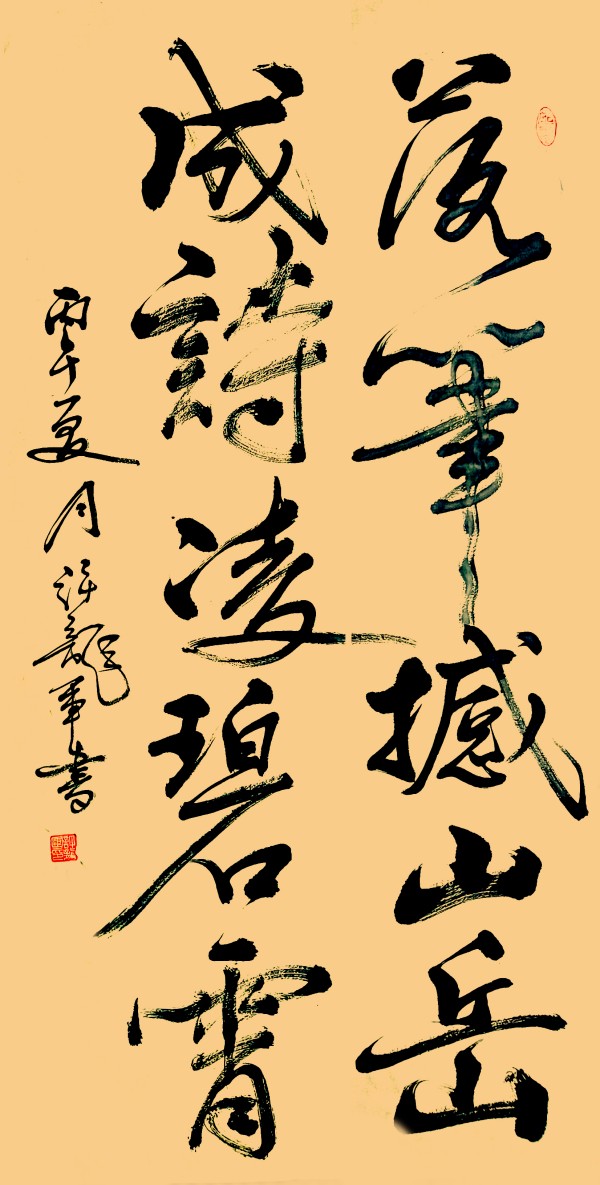 落筆撼山岳
成詩凌碧霄
丙午夏月許龍軍書